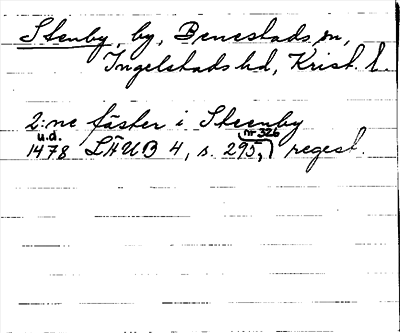 Stenby, by, Benestads sn,
Ingelstads hd, Krist. l.
2:ne fäster i Steenby
u.d. nr 326
1478 LÄUB 4, s. 295, regest.